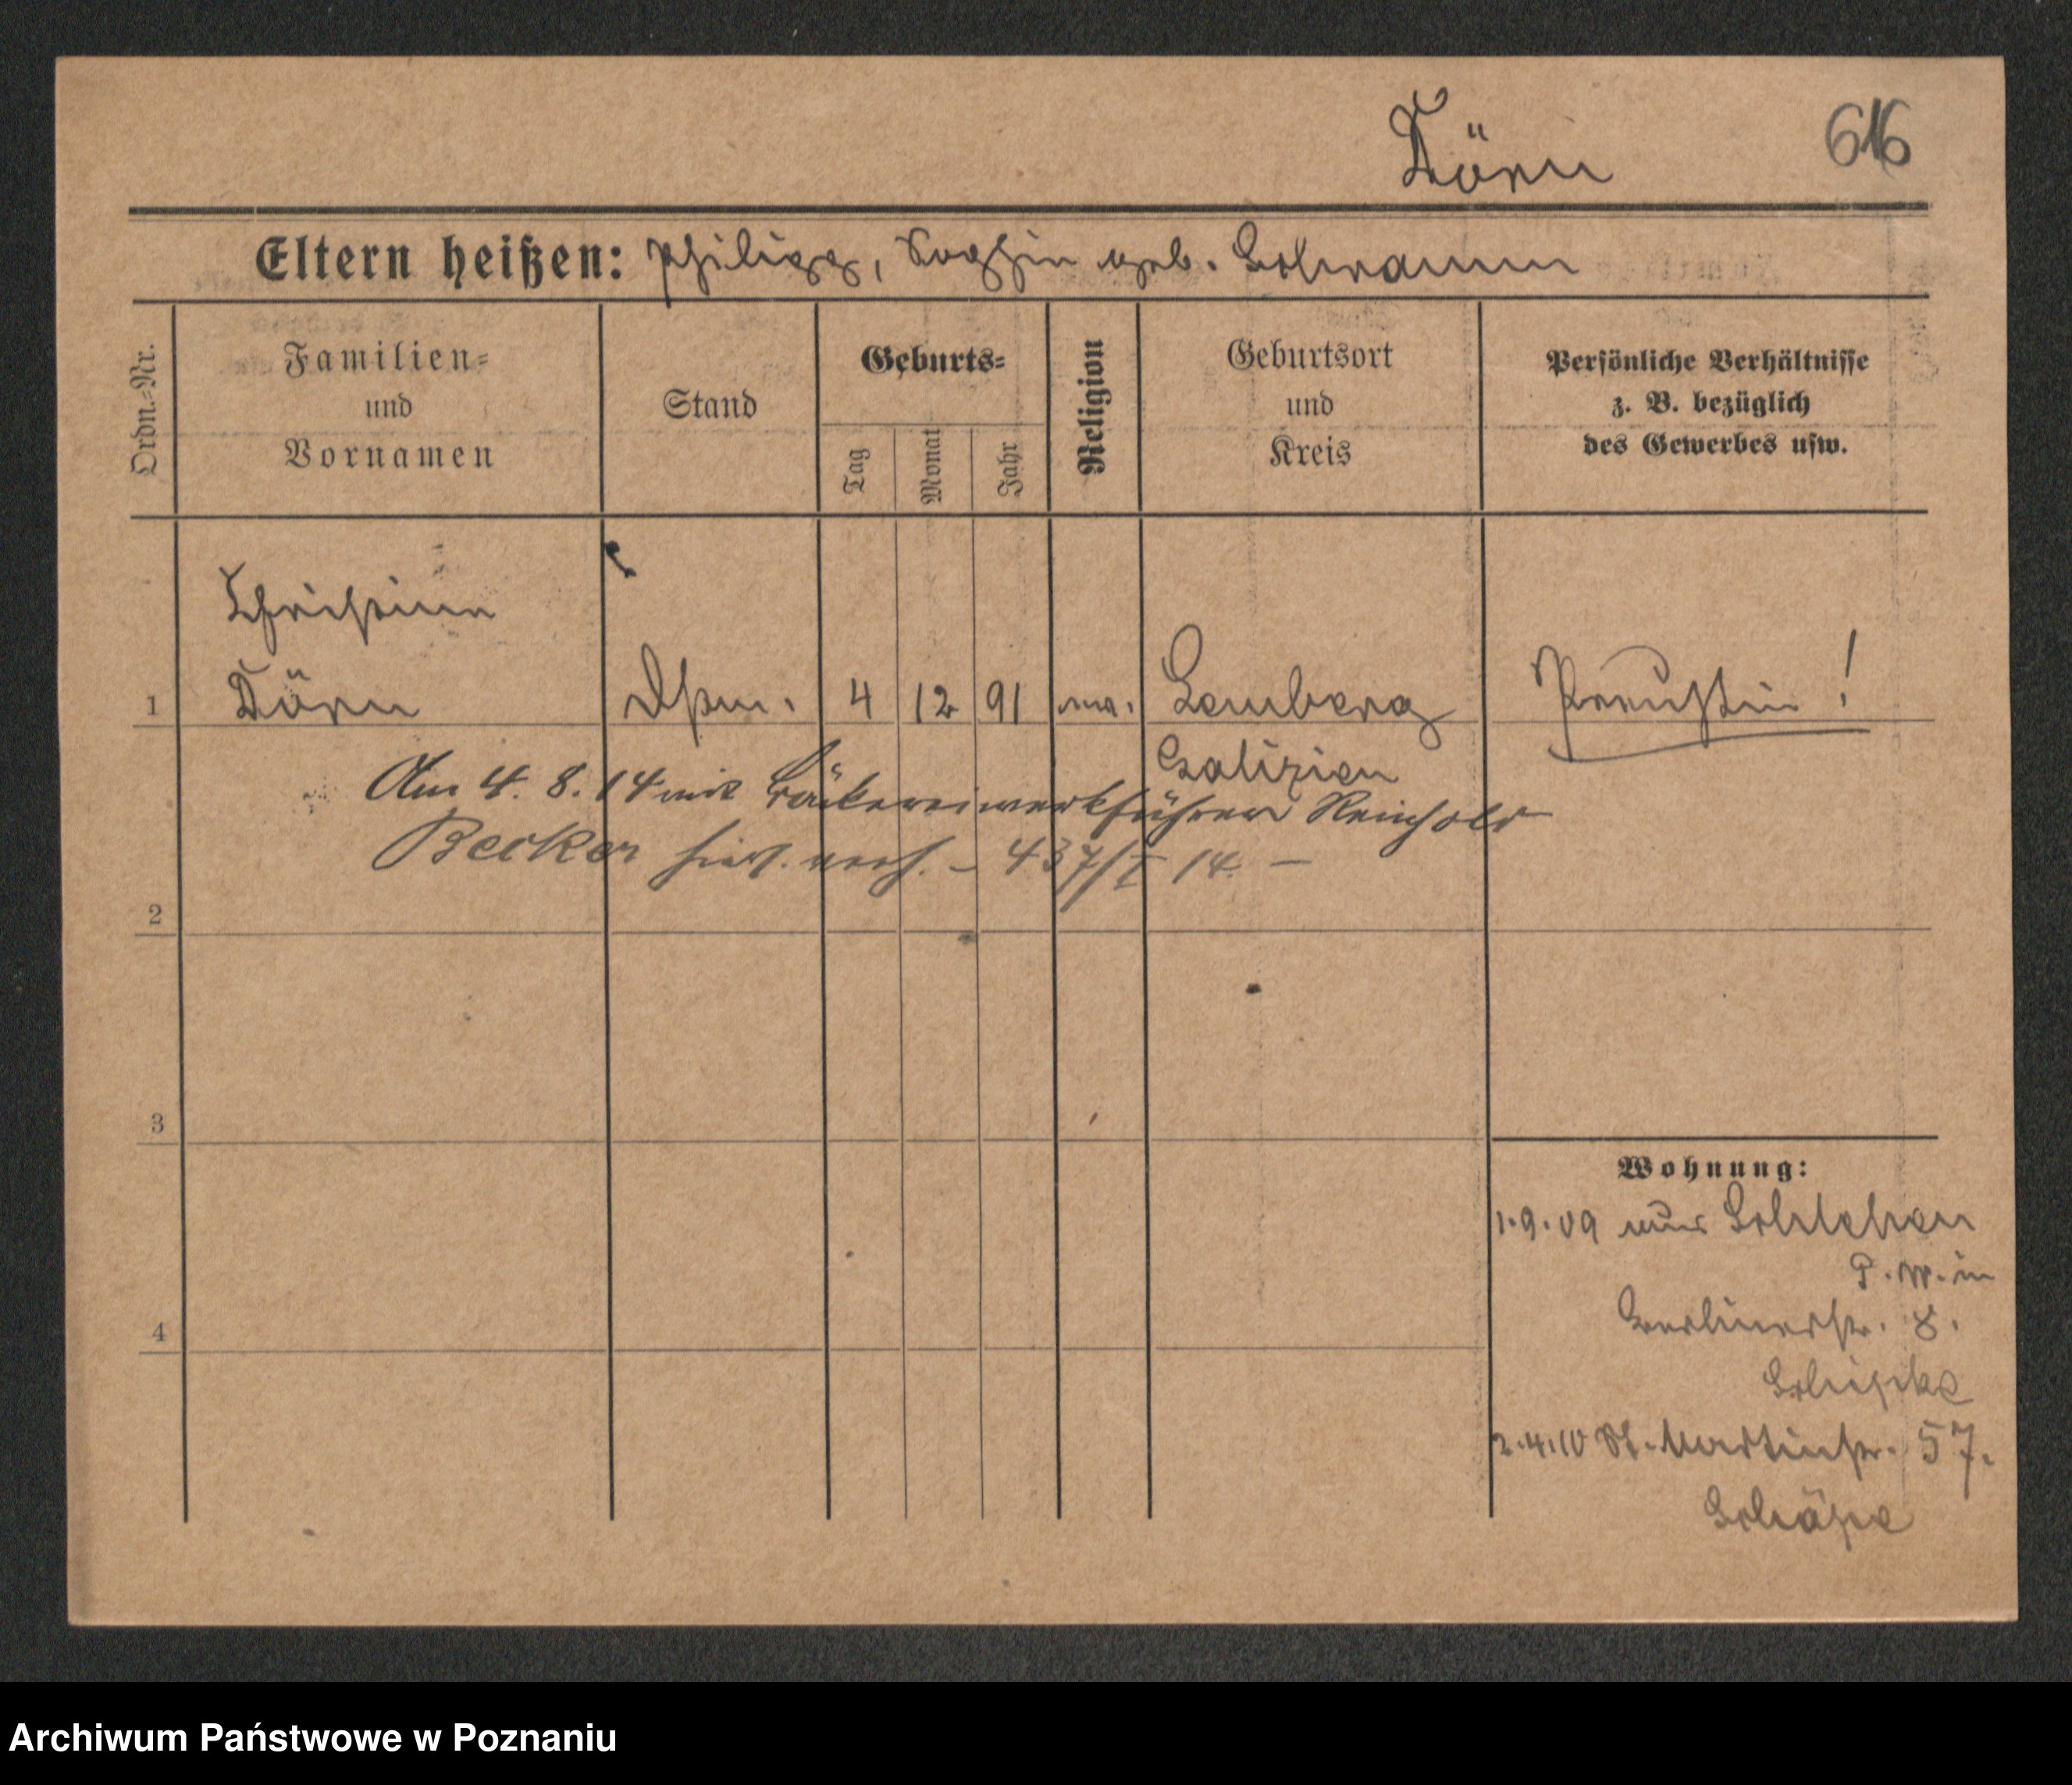 Dörr
616
Eltern heißen: Philipp, Sophie geb. Schramm
Ordn.=Nr.
Familien=
und
Vornamen
Stand
Geburts=
Tag
Monat
Jahr
Religion
Geburtsort
und
Kreis
Persönliche Verhältnisse
z. B. bezüglich
des Gewerbes usw.
Christine
1 Dörr 4 12 91 Lemberg Preußin!
Galizien
Am 4. 8. 14 mit Bäckereiwerkführer Reinhold
Becker hier verh. – 437/I 14. –
2
3
4
Wohnung:
1.9.09 aus
P. W. in
Berlinerstr. 8.
2.4.10 St. Martinstr. 57.
Archiwum Państwowe w Poznaniu